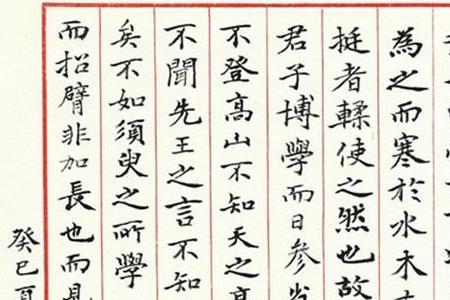 為之而寒於水木
挺者輮使之然也故
君子博學而日參
不登高山不知天之高
不聞先王之言不知
矣不如須臾之所學
而招臂非加長也而見
癸巳夏